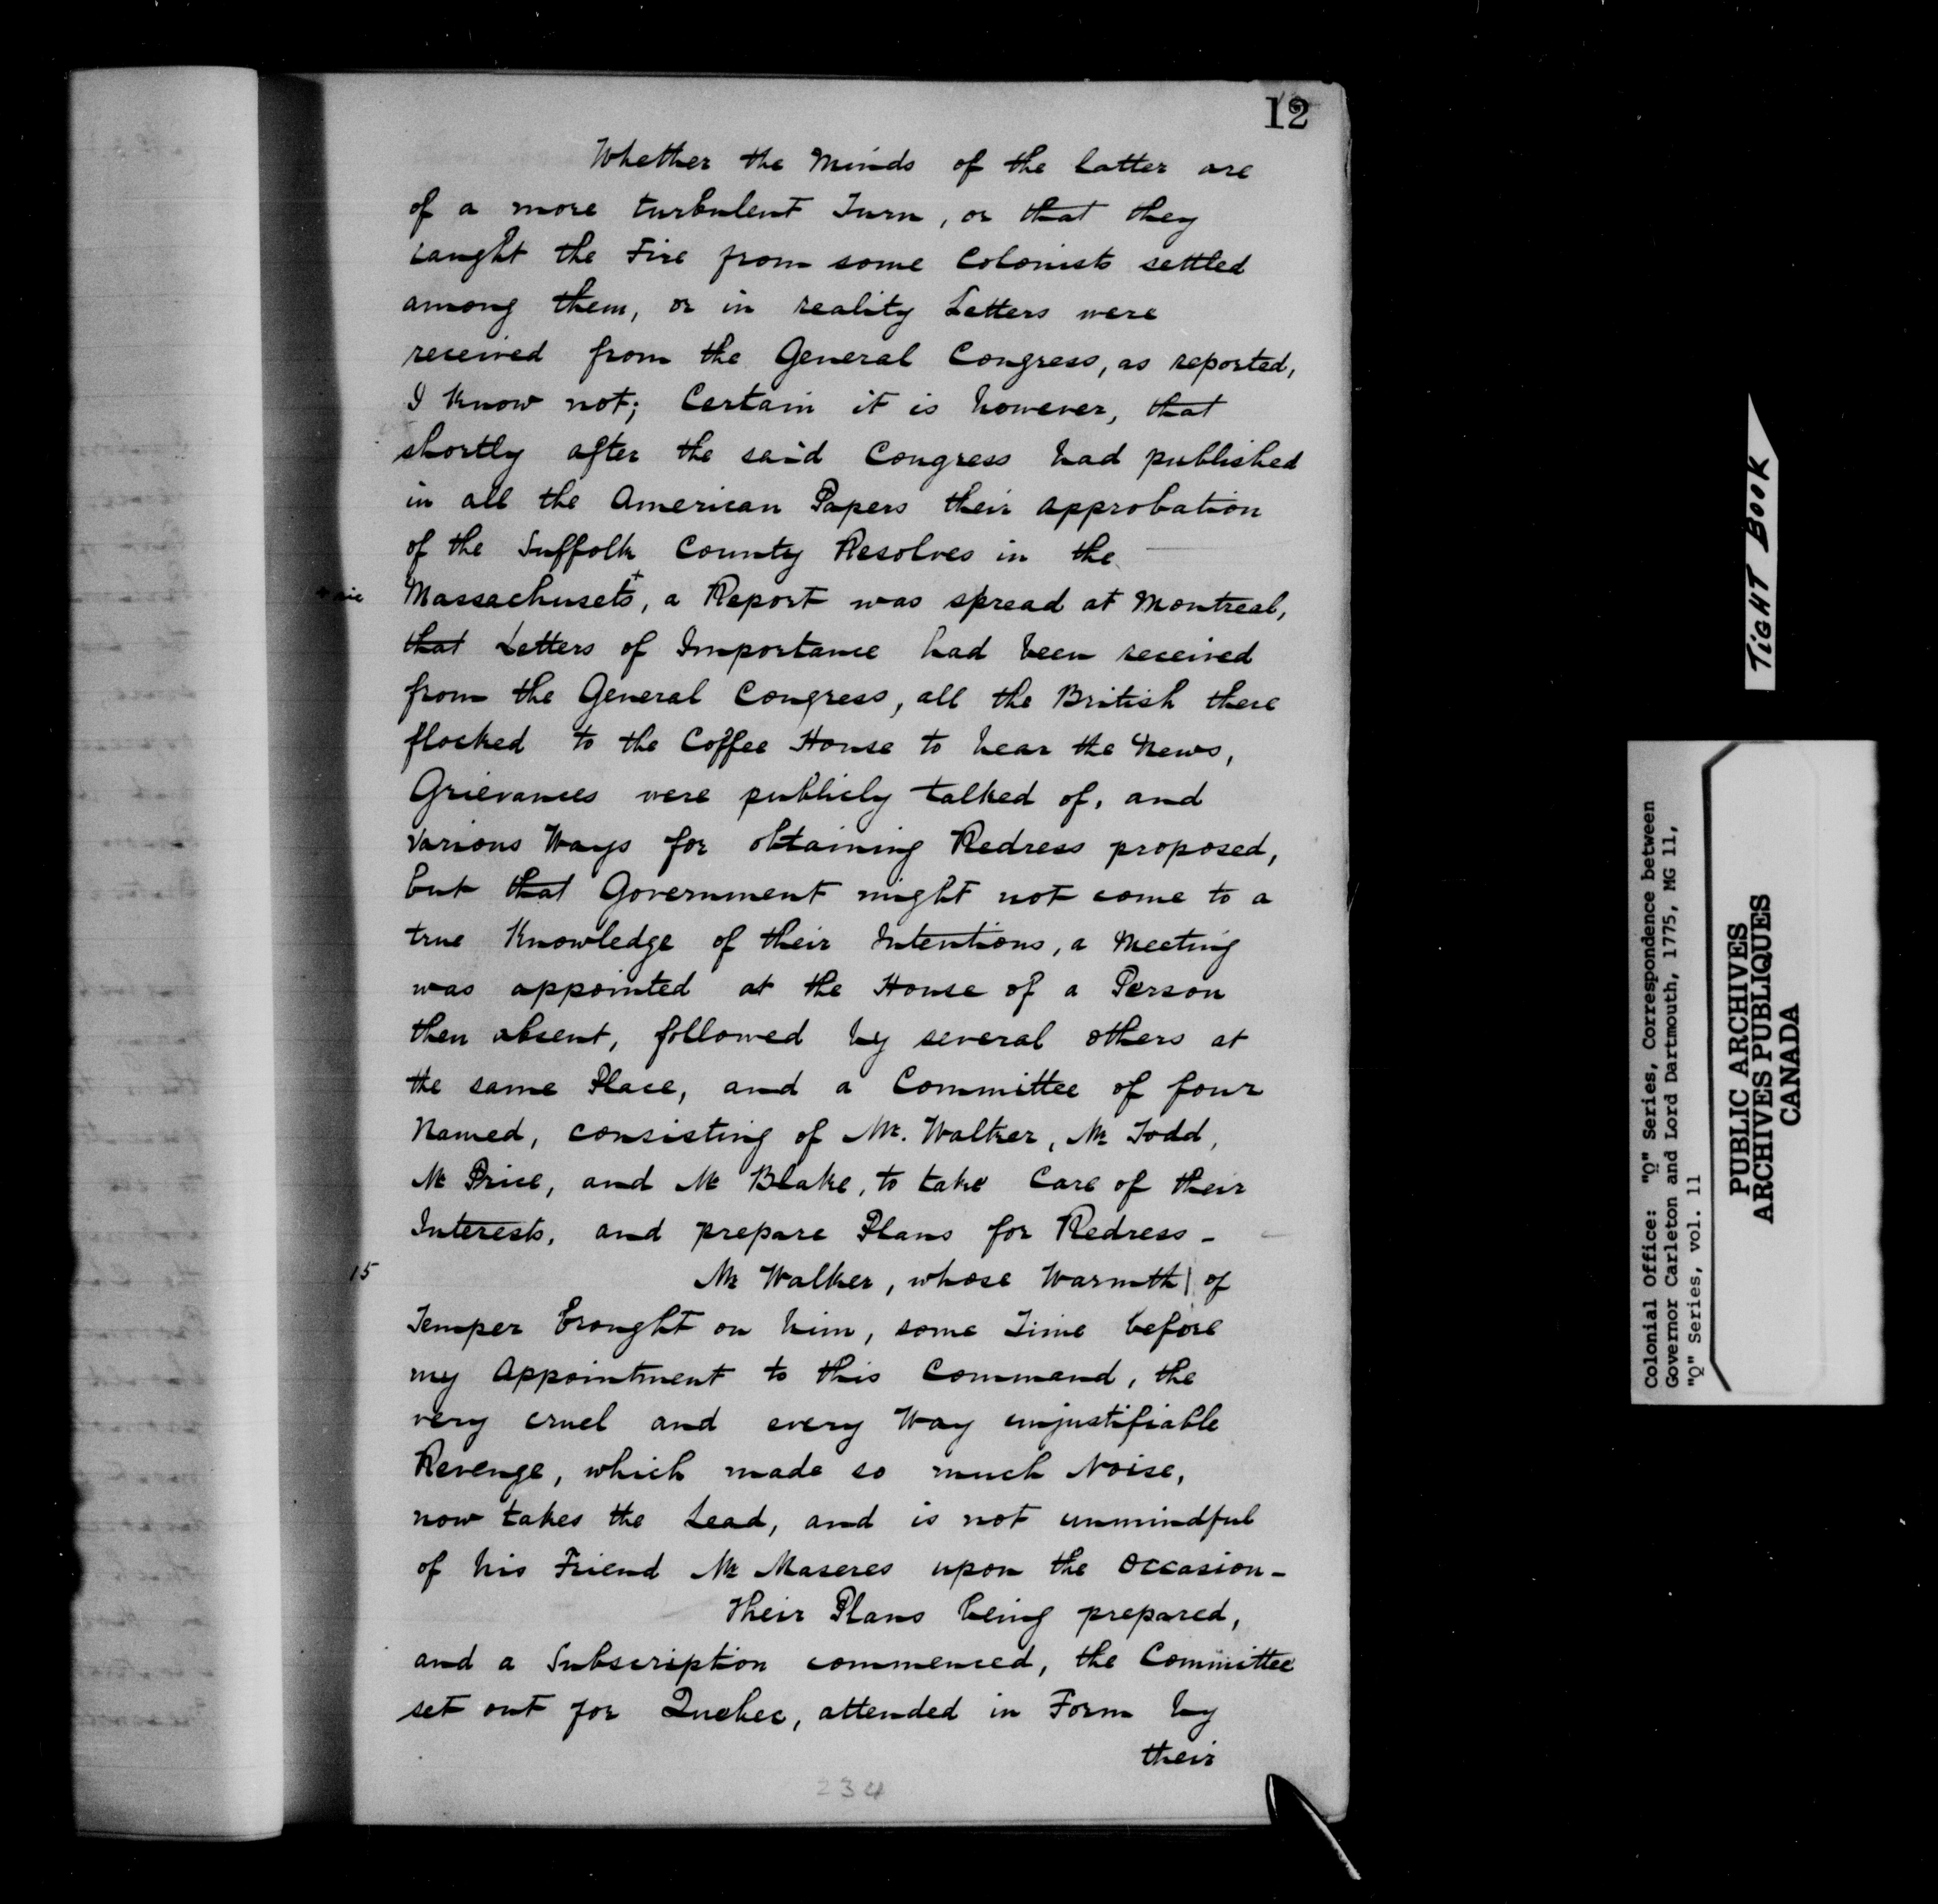 12
Whether the Minds of the latter are
of a more turbulent Turn, or that they
caught the Fire from some Colonists settled
among them, or in reality Letters were
received from the General Congress, as reported,
I know not; Certain it is however, that
shortly after the said Congress had published
in all the American Papers their approbation
of the Suffolk County Resolves in the
+ sic Massachusets+, a Report was spread at Montreal,
that Letters of Importance had been received
from the General Congress, all the British there
flocked to the Coffee House to hear the News,
Grievances were publicly talked of, and
various Ways for obtaining Redress proposed,
but that Government might not come to a
true Knowledge of their Intentions, a Meeting
was appointed at the House of a Person
then absent, followed by several others at
the same Place, and a Committee of four
Named, consisting of Mr. Walker, Mr Todd,
Mr Price, and Mr Blake, to take Care of their
Interests, and prepare Plans for Redress -
15 Mr Walker, whose Warmth | of
Temper brought on him, some Time before
my Appointment to this Command, the
very cruel and every Way unjustifiable
Revenge, which made so much Noise,
now takes the Lead, and is not unmindful
of his Friend Mr Maseres upon the Occasion -
Their Plans being prepared,
and a Subscription commenced, the Committee
set out for Quebec, attended in Form by
their
234
TIGHT BOOK
Colonial Office: "Q" Series, Correspondence between
Governor Carleton and Lord Dartmouth, 1775, MG 11,
"Q" Series, vol. 11
PUBLIC ARCHIVES
ARCHIVES PUBLIQUES
CANADA